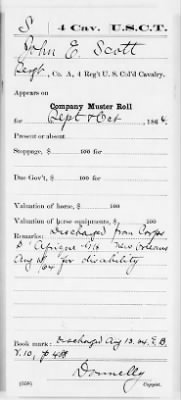 S | 4 Cav. | U.S.C.T.
John E. Scott
Sergt., Co. A, 4 Reg't U. S. Col'd Cavalry.
Appears on
Company Muster Roll
for Sept & Oct, 186 4.
Present or absent
Stoppage, $ 100 for
Due Gov't, $ 100 for
Valuation of horse, $ 100
Valuation of horse equipments, $ 100
Remarks: Discharged from Corps
D'Afrique New Orleans
Aug 13/64 for disability
Book mark: Discharged Aug 13. 64. R. B.
V. 10, p 488
Donnelly
(358) Copyist.